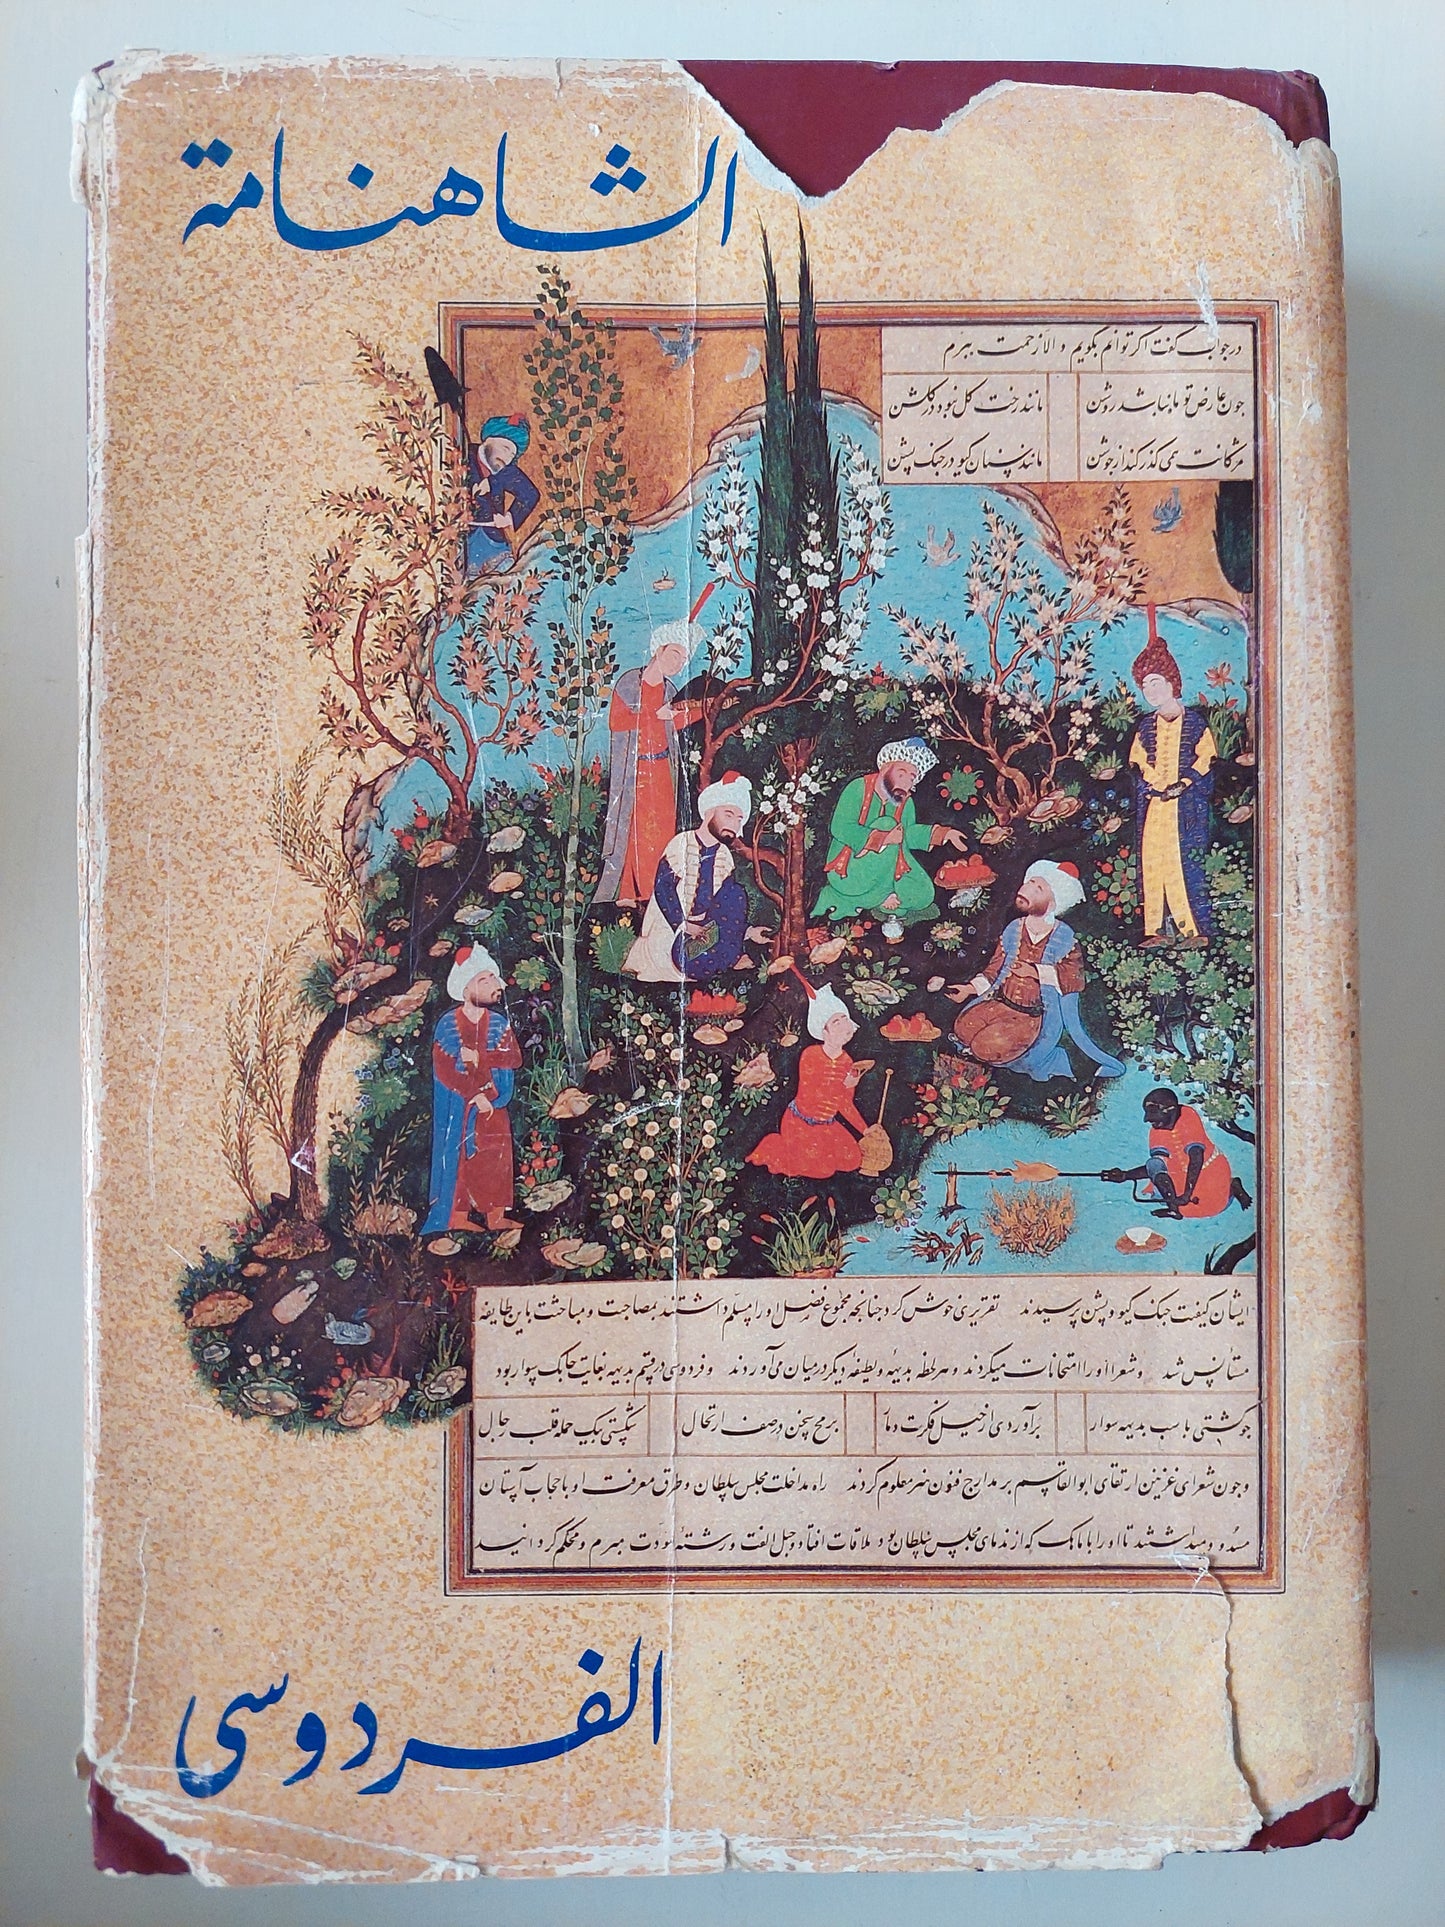 الشاهنامة
در جواب گفت اگر توانم بگویم و الا زحمت ببرم
چون عارض تو ماه نباشد روشن مانند رخت گل نبود در گلشن
مژگانت همی گذر کند از جوشن مانند سنان گیو در جنگ پشن
ایشان کیفیت جنگ گیو و پشن پرسیدند تقریری خوش کرد چنانچه مجموع فضل او را مسلم داشتند بمصاحبت و مباحثت با این طایفه
مستأنس شد و شعرا او را امتحانات میکردند و هر لحظه بدیهه و لطیفه دیگر در میان می آوردند و فردوسی در قسم بدیهه بغایت چابک سوار بود
چو گشتی با سب بدیهه سوار برآوردی از خیل فکرت دمار برمح سخن در صف ارتجال شکستی بیک حمله قلب رجال
و چون شعرای غزنین ارتقای ابوالقاسم بر مدارج فنون هنر معلوم کردند راه مداخلت مجلس سلطان و طرق معرفت او با حجاب آستان
مسدود میداشتند تا او را با ماهک که از ندمای مجلس سلطان بود ملاقات افتاد و حبل الفت و رشته مودت مبرم و محکم گردانید
الفردوسی